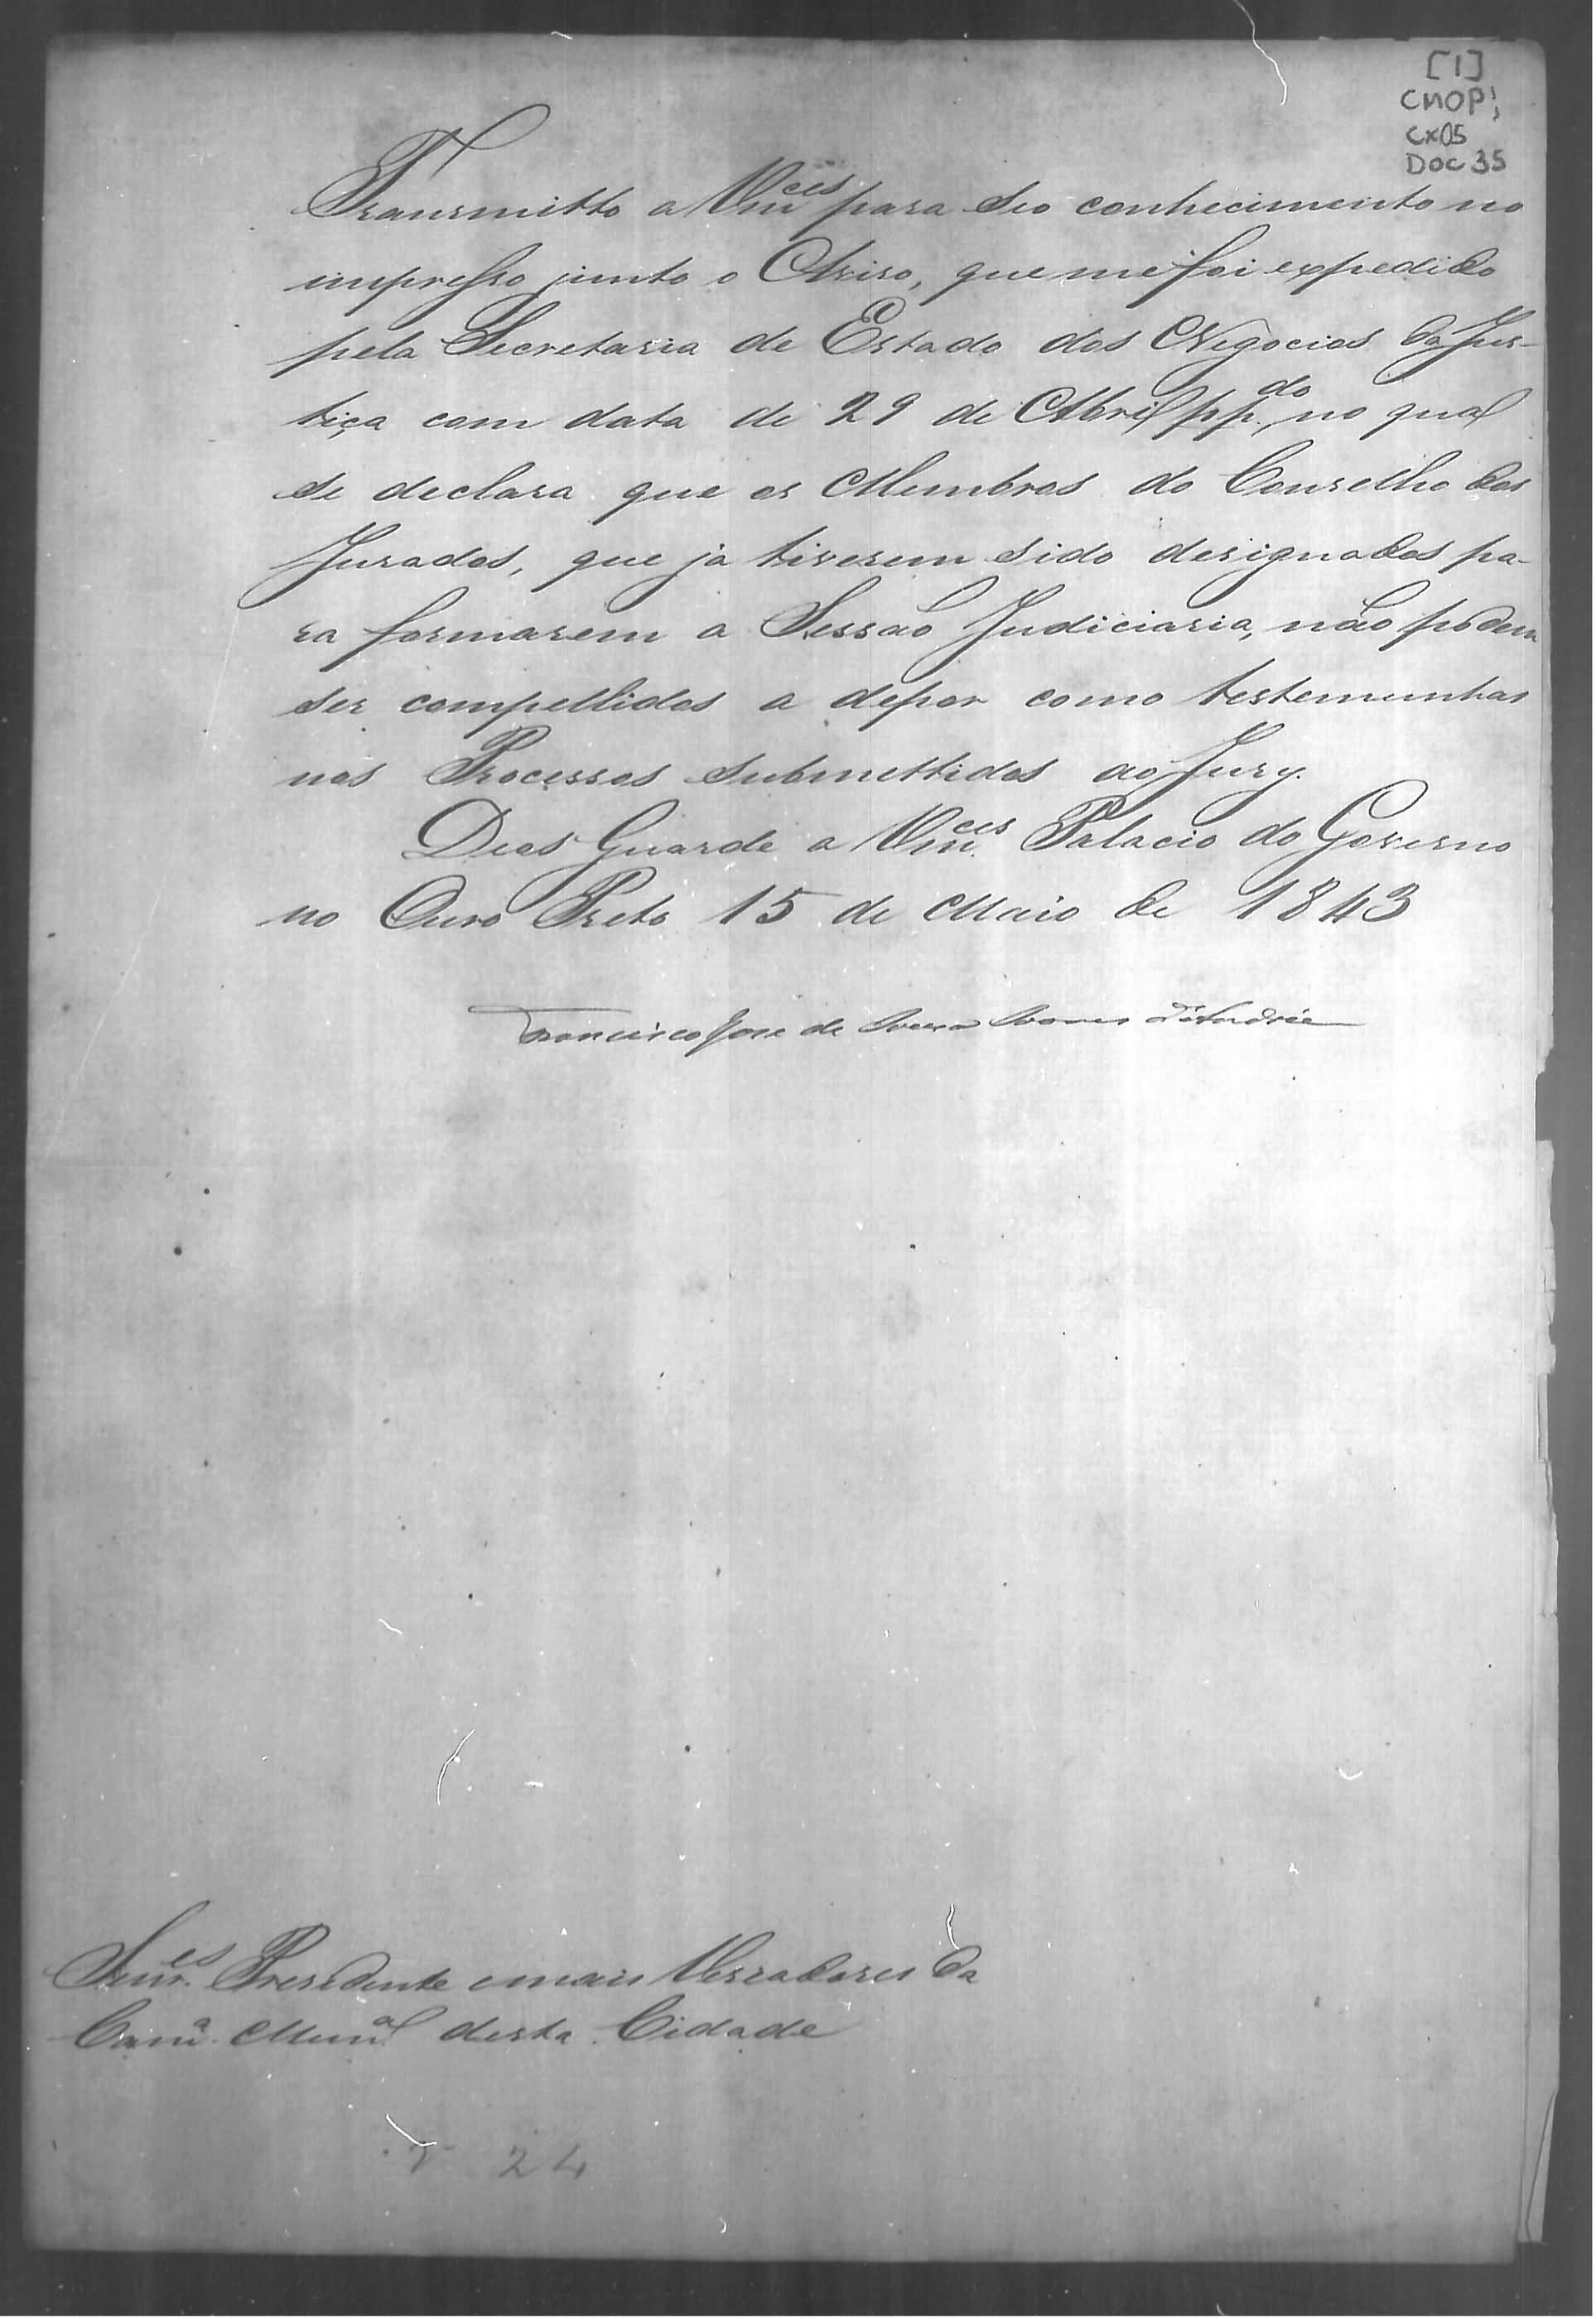 [1]
CMOP;
CX05
DOC 35
Transmitto a Vm.ces para seo conhecimento no
impresso junto o Aviso, que me foi expedido
pela Secretaria de Estado dos Negocios da Jus-
tiça com data de 29 de Abril pp.do, no qual
se declara que os Membros do Conselho dos
Jurados, que ja tiverem sido designados pa-
ra formarem a Sessão Judiciaria, não podem
ser compellidos a depor como testemunhas
nos Processos submettidos ao Jury.
Deos Guarde a Vm.ces Palacio do Governo
no Ouro Preto 15 de Maio de 1843
Francisco Jose de Souza Soares d'Andréa
Snr.es Presidente e mais Vereadores da
Cam.a Mun.al desta Cidade
24